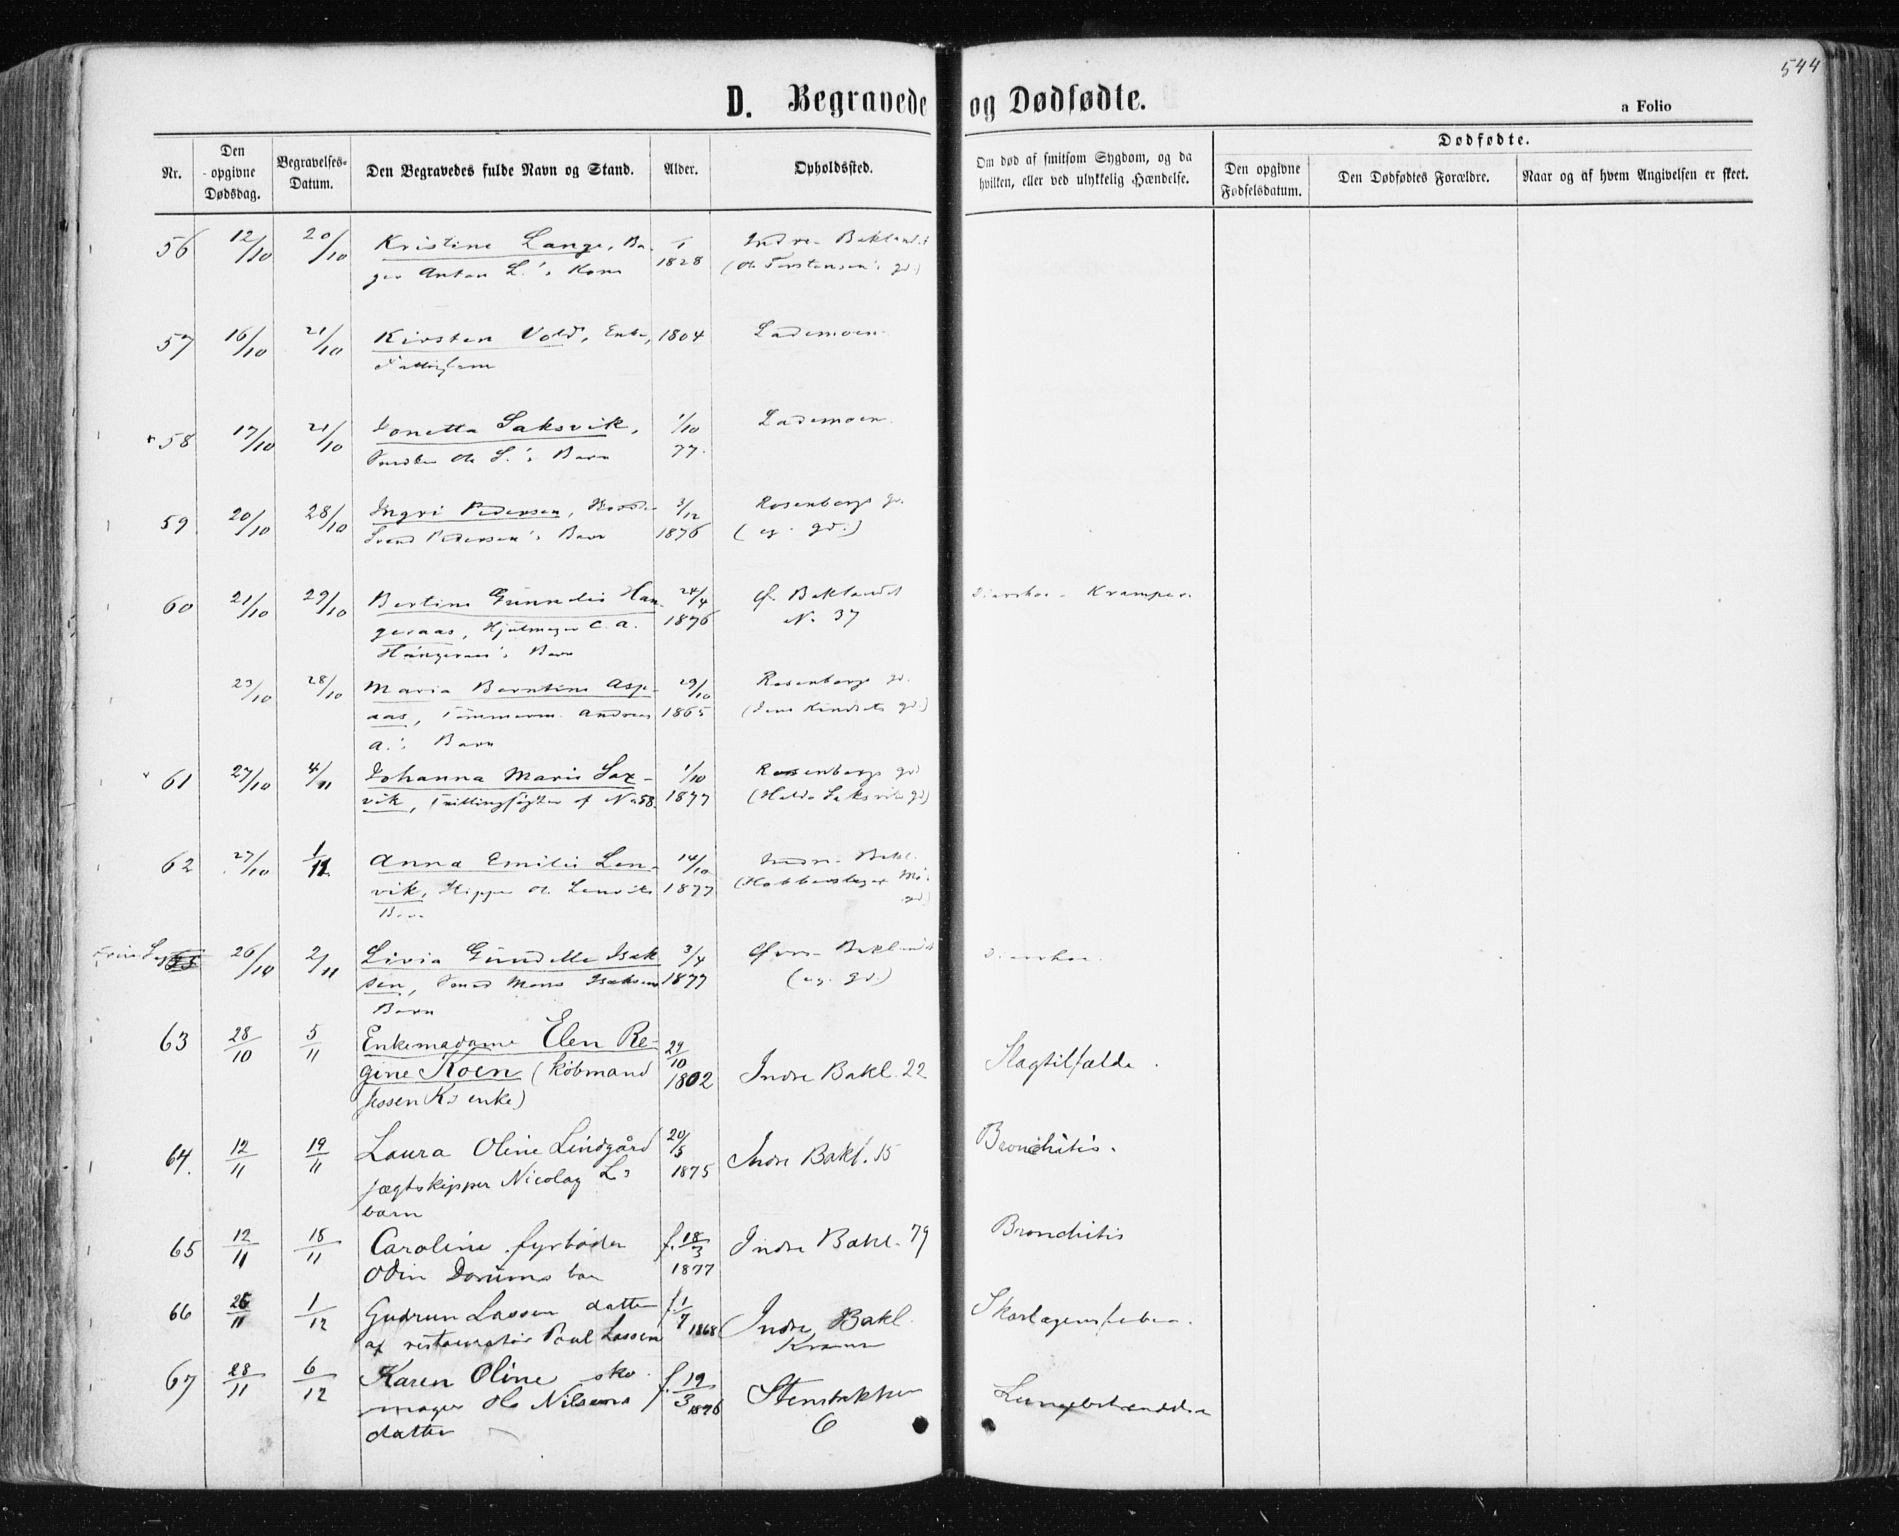 544
D. Begravede og Dødfødte.
a Folio
Nr.
Den opgivne Dødsdag.
Begravelses-Datum.
Den Begravedes fulde Navn og Stand.
Alder.
Opholdssted.
Om død af smitsom Sygdom, og da hvilken, eller ved ulykkelig Hændelse.
Dødfødte.
Den opgivne Fødselsdatum.
Den Dødfødtes Forældre.
Naar og af hvem Angivelsen er skeet.
56 12/10 20/10 Kristine Lange, Ba- 1828 Indre Baklandet
ger Anton L.'s Kone (Ole Torstensen's gd.)
57 16/10 21/10 Kirsten Vold, Enke, 1804 Lademoen
Fattiglem
58 17/10 21/10 Jonetta Saksvik, 1/10 Lademoen
Ole L.'s Barn 77.
59 20/10 28/10 Ingri Pedersen, 3/12 Rosenborg gd.
Svend Pedersen's Barn 1876 (eg. gd.)
60 21/10 29/10 Bertine Gunnelie Han- 24/4 Ø. Baklandet Diarrhoe - Kramper.
geraas, Hjulmager C. A. 1876 N. 37
Hangeraas's Barn
23/10 28/10 Maria Berntine Asp- 29/10 Rosenborg gd.
aas, Tömmerm. Andreas 1865 (Jens Kindsets gd.)
A.'s Barn
61 27/10 4/11 Johanna Marie Sax- 1/10 Rosenborg gd
vik, Tvillingsøster af No 58. 1877 (Halde Saksviks gd)
62 27/10 1/11 Anna Emilie Len- 14/10 Indre Bakl.
vik, Skipper O. Lenviks 1877
Barn
26/10 2/11 Livia Gundelle Isak 3/4 Øvre Baklandet Diarrhoe.
sen, Smed Mons Isaksens 1877 (eg. gd.)
Barn
63 28/10 5/11 Enkemadame Elen Re- 29/10
gine Koen (købmand 1802 Indre Bakl. 22 Slagtilfælde.
Jessen K.s enke)
64. 12/11 19/11 Laura Oline Lindgård 20/5 Indre Bakl. 15 Bronchitis.
jægtskipper Nicolay L.s 1875
barn
65 12/11 18/11 Caroline fyrbøder f. 18/3 Indre Bakl. 79 Bronchitis
Odin Dorums bar 1877
66 26/11 1/12 Gudrun Lassen datter f. 1/7 1868 Indre Bakl. Skarlagensfeber.
af restauratör Poul Lassen
67 28/11 6/12 Karen Oline sko f. 19/3 1876 Stenbakken Lungebetændelse
mager Ole Nilsens 6
datter